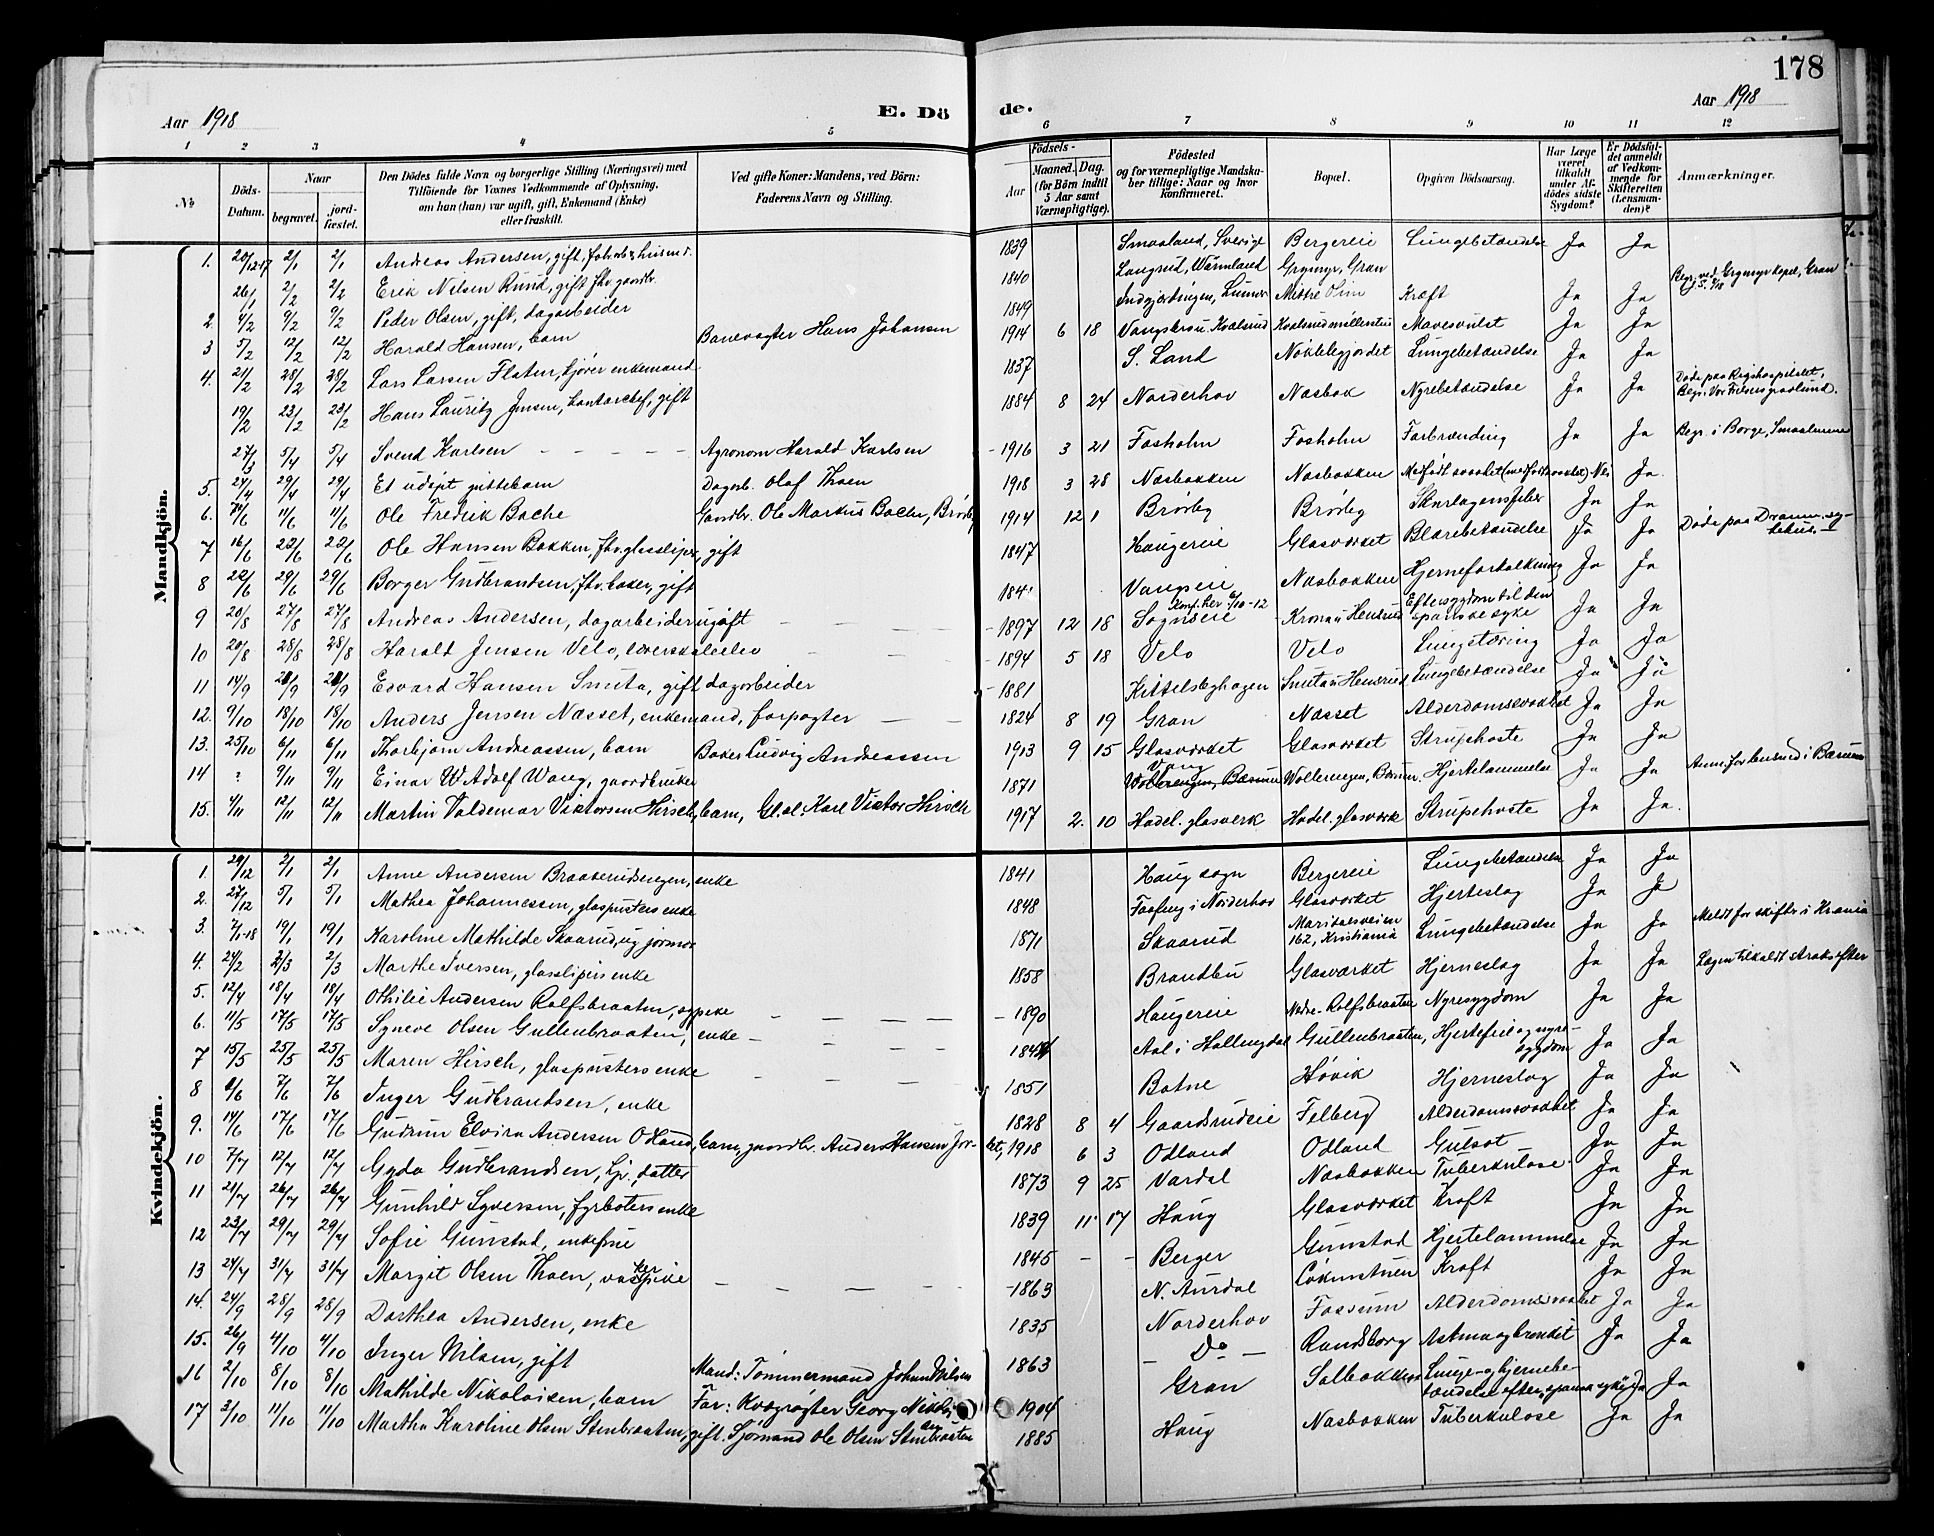 178
Aar 1918 E. Dö de. Aar 1918
1 2 3 4 5 6 7 8 9 10 11 12
№
Döds-Datum.
Naar begravet. jordfæstet.
Den Dödes fulde Navn og borgerlige Stilling (Næringsvei) med Tilföiende for Voxnes Vedkommende af Oplysning, om han (hun) var ugift, gift, Enkemand (Enke) eller fraskilt.
Ved gifte Koner: Mandens, ved Börn: Faderens Navn og Stilling.
Födsels- Aar Maaned. Dag. (for Börn indtil 5 Aar samt Værnepligtige).
Födested og for værnepligtige Mandskaber tillige: Naar og hvor konfirmeret.
Bopæl.
Opgiven Dödsaarsag.
Har Læge været tilkaldt under Afdödes sidste Sygdom?
Er Dödsfaldet anmeldt af Vedkommende for Skifteretten (Lensmanden)?
Anmærkninger.
Mandkjön.
1. 20/12-17 2/1 2/1 Andreas Andersen, gift, 1839 Smaaland, Sverige Bergereie Lungebetændelse Ja Ja
26/1 2/2 2/2 Erik Nilsen Rund, gift fhv. gaardbr. 1840 Langrud, Wärmland Grymyr, Gran Begr. ved Grymyr kapel, Gran
2. 4/2 9/2 9/2 Peder Olsen, gift, dagarbeider 1849 Indgjerdingen, Lunner Mistre Olim Kræft Ja Ja
3 5/2 12/2 12/2 Harald Hansen, barn Banevogter Hans Johansen 1914 6 18 Mavesvulst Ja Ja
4. 21/2 28/2 28/2 Lars Larsen Flatun, kjører enkemand 1837 S. Land Nøklebygjordet Lungebetændelse Ja Ja
19/2 23/2 23/2 Hans Lauritz Jensen, kontorchef, gift 1884 8 24 Norderhov Næsbak Nyrebetændelse Ja Ja Døde paa Rigshospitalet, Begr. Vor Frelsers gravlund.
27/3 5/4 5/4 Svend Karlsen Agronom Harald Karlsen 1916 3 21 Fosholm Fosholm Forbrænding Ja Ja Begr. i Borge, Smaalenene
5. 24/4 29/4 29/4 Et udøpt guttebarn Dagarb. Olaf Thoen 1918 3 28 Næsbakken Næsbakken Medfødt svakhet Nei Ja
6. 7/6 11/6 11/6 Ole Fredrik Bache Gaardbr. Ole Markus Bache, Brørby 1914 12 1 Brørby Brørby Skarlagensfeber Ja Ja
7 16/6 23/6 23/6 Ole Hansen Bakken, fhv. glassliper, gift 1847 Haugereie Glasværket Blærebetændelse Ja Ja Døde paa Dramm. sykehus.
8 22/6 29/6 29/6 Borger Gudbrandsen, fhv. baker, gift 1841 Vangseie Næsbakken Hjerneforkalkning Ja Ja
9 20/8 27/8 27/8 Andreas Andersen, dagarbeider ugift 1897 12 18 Sognseie Konf. her 6/10-12 Hensrud Eftersygdom til den spanske syke Ja Ja
10 20/8 28/8 28/8 Harald Jensen Velo, 1894 5 18 Velo Velo Lungetæring Ja Ja
11 14/9 21/9 21/9 Edvard Hansen Smuta, gift dagarbeider 1881 Kittelsbyhagen Smuta u Hensrud Lungebetændelse Ja Ja
12. 9/10 18/10 18/10 Anders Jensen Næsset, enkemand, forpagter 1824 8 19 Gran Næsset Alderdomssvakhet Ja Ja
13. 25/10 6/11 6/11 Thorbjørn Andreassen, barn Baker Ludvig Andreassen 1913 9 15 Glasværket Glasværket Strupehoste Ja Ja
14 ? 9/11 9/11 Einar W. Adolf Wang, gaardbruker 1871 Vang Wollerengen, Bærum Wollerengen, Bærum Hjertelammelse Ja Ja Anm. for lensmd. i Bærum
15. 4/11 12/11 12/11 Martin Valdemar Viktorsen Hirsch, barn, Gl.sl. Karl Victor Hirsch 1917 2. 10 Hadel. glasverk Hadel. glasværk Strupehoste Ja Ja.
Kvindekjön.
1. 29/12 2/1 2/1 Anne Andersen Braakerudsengen, enke 1841 Haug sogn Bergereie Lungebetændelse Ja Ja
2. 27/12 5/1 5/1 Mathea Johannessen, glaspusters enke 1848 i Norderhov Glasværket Hjerteslag Ja Ja
3. 7/1-18 19/1 19/1 Karoline Mathilde Skaarud, ug. jormor 1871 Skaarud Maridalsveien 162, Kristiania Lungebetændelse Ja Ja Meldt for skifter i Krania
4. 24/2 2/3 2/3 Marthe Iversen, glasslipers enke 1858 Brandbu Glasværket Hjerneslag Ja Ja Lægen tilkaldt straks efter
5. 12/4 18/4 18/4 Othilie Andersen Rolfsbraaten, ugpike 1890 Haugereie Nedre-Rolfsbraaten Nyresygdom Ja Ja
6. 11/5 17/5 17/5 Syneve Olsen Gullenbraaten, enke Aal i Hallingdal Gullenbraaten, Hjertefeil og nyresygdom Ja Ja
7 15/5 25/5 25/5 Maren Hirsch, glaspusters enke 1851 Botne Høvik Hjerneslag Ja Ja
8 2/6 7/6 7/6 Inger Gudbrandsen, enke 1828 8 4 Gaardsrudeie Felberg Alderdomssvakhet Ja Ja
9. 14/6 17/6 17/6 Gudrun Elvira Andersen Odland, barn, gaardbr. Anders Hansen Jor- 1918 6 3 Odland Odland Gulsot Ja Ja
10 7/7 12/7 12/7 Gyda Gudbrandsen, kj. datter 1873 9 25 Vardal Næsbakken Tuberkulose Ja Ja
11 21/7 26/7 26/7 Gunhild Syversen, fyrbøters enke 1839 11 17 Haug Glasværket Kræft Ja Ja
12 23/7 29/7 29/7 Sofie Gunstad, enkefrue 1845 Berger Gunstad Hjertelammelse Ja Ja
13 24/7 31/7 31/7 Margit Olsen Thoen, vaskerpike 1863 N. Aurdal Kræft Ja Ja
14. 24/9 28/9 28/9 Dorthea Andersen, enke 1835 Norderhov Fossum Alderdomssvakhet Ja Ja
15. 26/9 4/10 4/10 Inger Nilsen, gift Mand: Tømmermand Johan Nilsen 1863 — Do — Randsborg Astma og bronkit Ja Ja
16 2/10 8/10 8/10 Mathilde Nikolaisen, barn Far: Kvægrøgter Georg Nikolaisen 1904 Gran Solbakken Lunge- og hjernebetændelse efter spansk syke Ja Ja
17 3/10 11/10 11/10 Martha Karoline Olsen Stenbraaten, gift. Sjømand Ole Olsen Stenbraaten 1885 Haug Næsbakken Tuberkulose Ja Ja